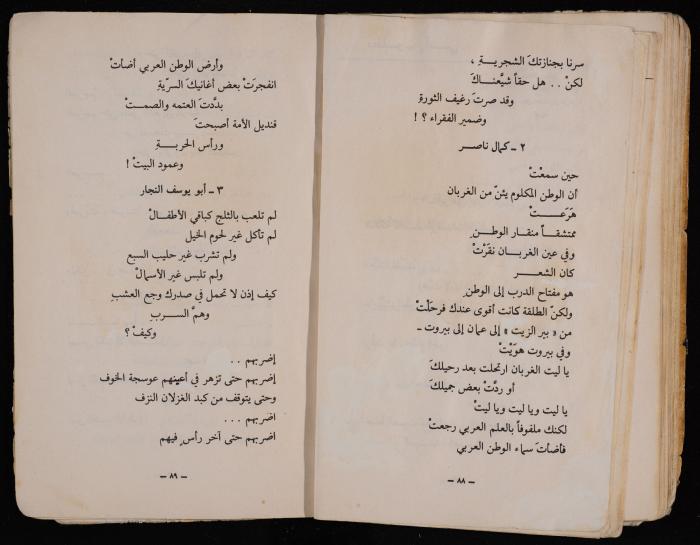 سرنا بجنازتكَ الشجريـــةِ ،
لكنْ . . هل حقاً شيَّعنــاكَ
وقد صرتَ رغيف الثورةِ
وضمير الفقراء ؟ !
٢ ــ كمال ناصر
حين سمعْتْ
أن الوطن المكلوم يئنّ من الغربان
هَرَعــــتْ
ممتشقــاً منقار الوطــنِ
وفي عين الغربــان نقرْتْ
كان الشعــر
هو مفتاح الدرب إلى الوطنِ
ولكنّ الطلقة كانت أقوى عندك فرحَلْتْ
من « بير الزيت » إلى عمان إلى بيروت ــ
وفي بيروت هوَيْتْ
يا ليت الغربان ارتحلت بعد رحيلكَ
أو ردَّتْ بعض جميلكَ
يا ليت ويا ليت ويا ليتْ
لكنك ملفوفاً بالعلم العربي رجعتْ
فأضأتَ سماء الوطن العربي
ــ ٨٨ ــ
وأرض الوطن العربي أضأتْ
انفجرَتْ بعض أغانيكَ السرّيةِ
بدَّدتَ العتمه والصمــتْ
قنديل الأمة أصبحتَ
ورأس الحربـــةِ
وعمود البيتْ !
٣ ــ أبو يوسف النجار
لم تلعب بالثلج كباقي الأطفالْ
لم تأكل غير لحوم الخيل
ولم تشرب غير حليب السبع
ولم تلبس غير الأسمالْ
كيف إذن لا تحمل في صدرك وجع العشبِ
وهمَّ الســربِ
وكيفْ ؟
إضربهم . .
إضربهم حتى تزهر في أعينهم عوسجة الخوف
وحتى يتوقف من كبد الغزلان النزف
اضربهم . . .
اضربهم حتى آخر رأسٍ فيهم
ــ ٨٩ ــ